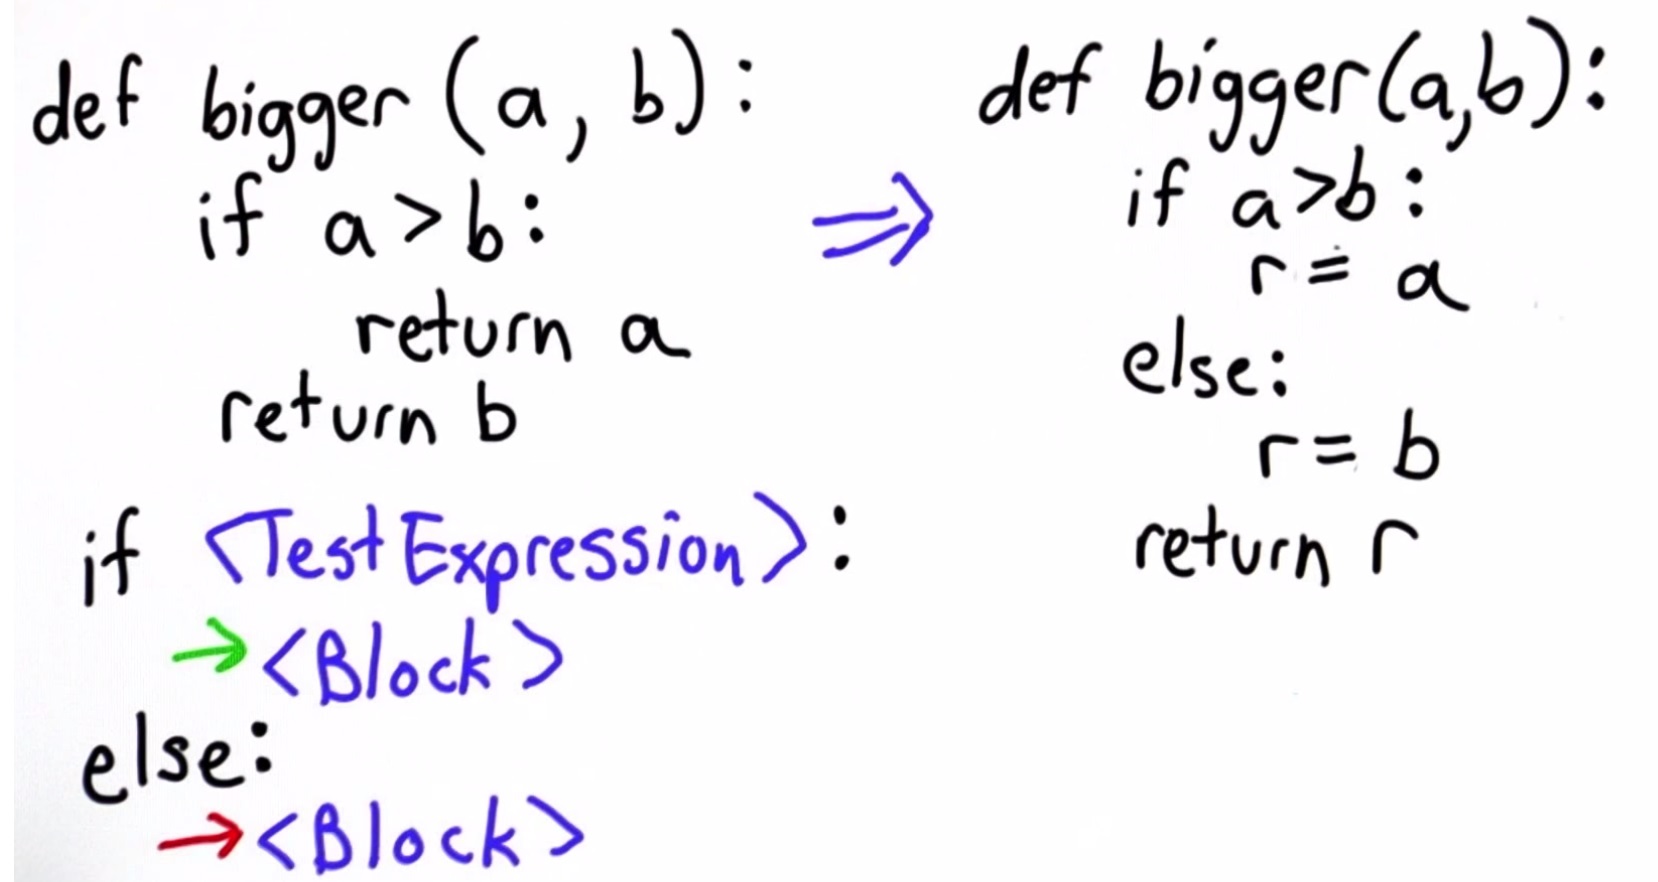 def bigger (a, b):
if a > b:
return a
return b
if <TestExpression>:
→ <Block>
else:
→ <Block>
⇒
def bigger(a,b):
if a>b:
r = a
else:
r = b
return r